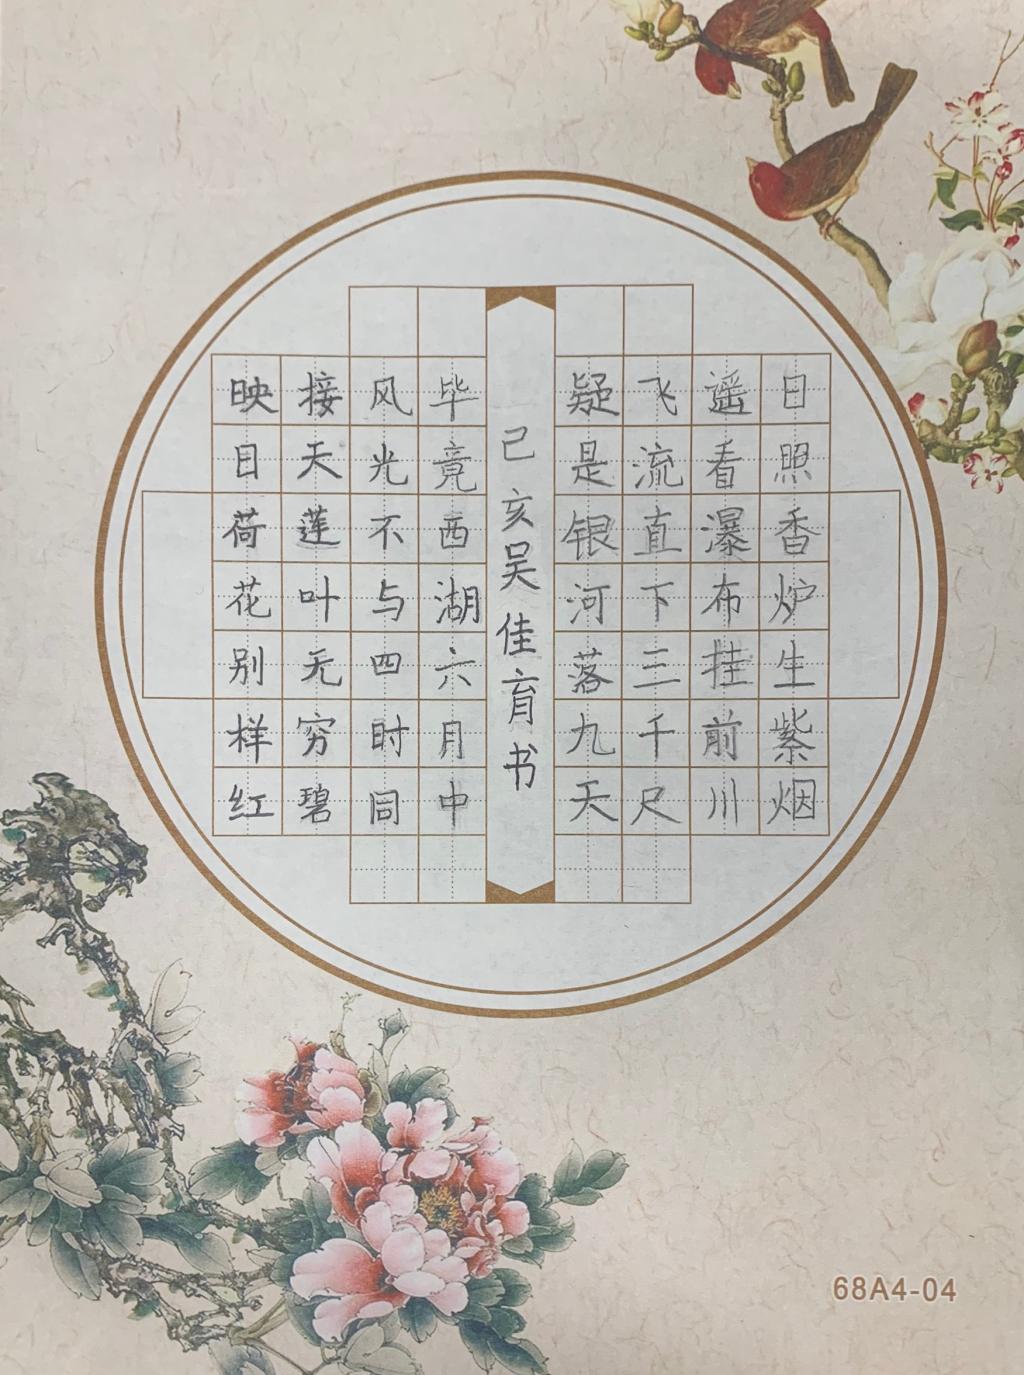 日照香炉生紫烟
遥看瀑布挂前川
飞流直下三千尺
疑是银河落九天
己亥吴佳育书
毕竟西湖六月中
风光不与四时同
接天莲叶无穷碧
映日荷花别样红
68A4-04